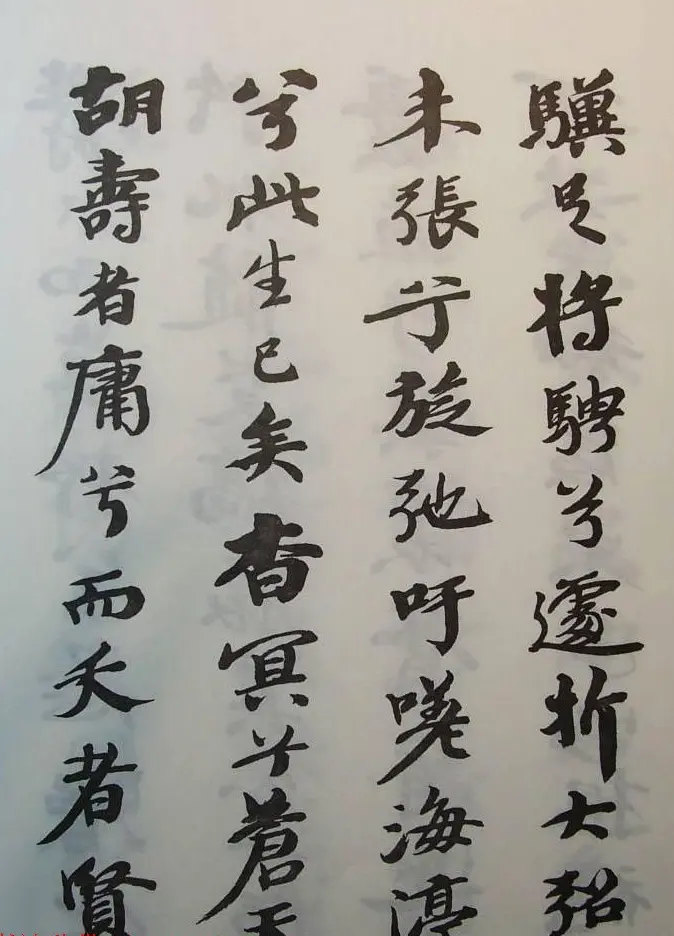 驥足将騁兮遽折大弨
未張兮旋弛吁嗟海渟
兮此生已矣杳冥兮蒼天
胡壽者庸兮而夭者賢